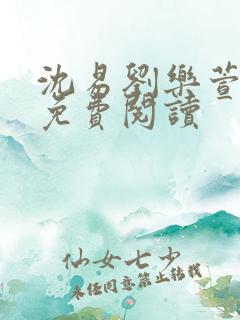 沈易劉樂萱
免費閱讀
仙女七少
未經同意禁止轉載